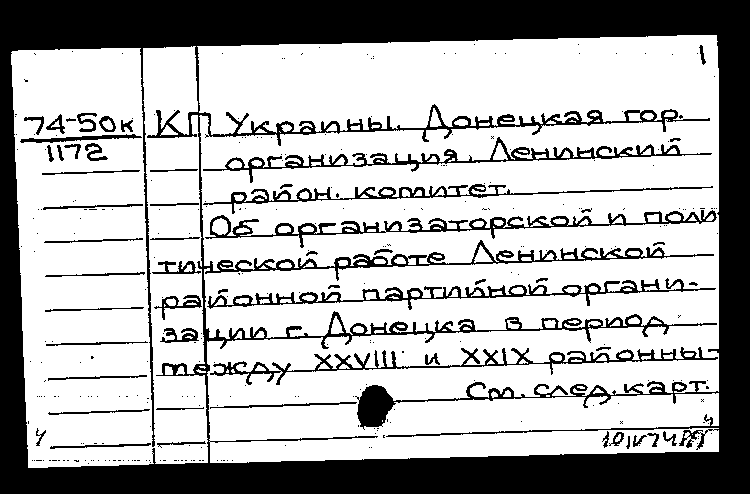 1
74-50к КП Украины. Донецкая гор.
1172 организация. Ленинский
район. комитет.
Об организаторской и поли
тической работе Ленинской
районной партийной органи-
зации г. Донецка в период
между XXVIII и XXIX районны-
См. след. карт.